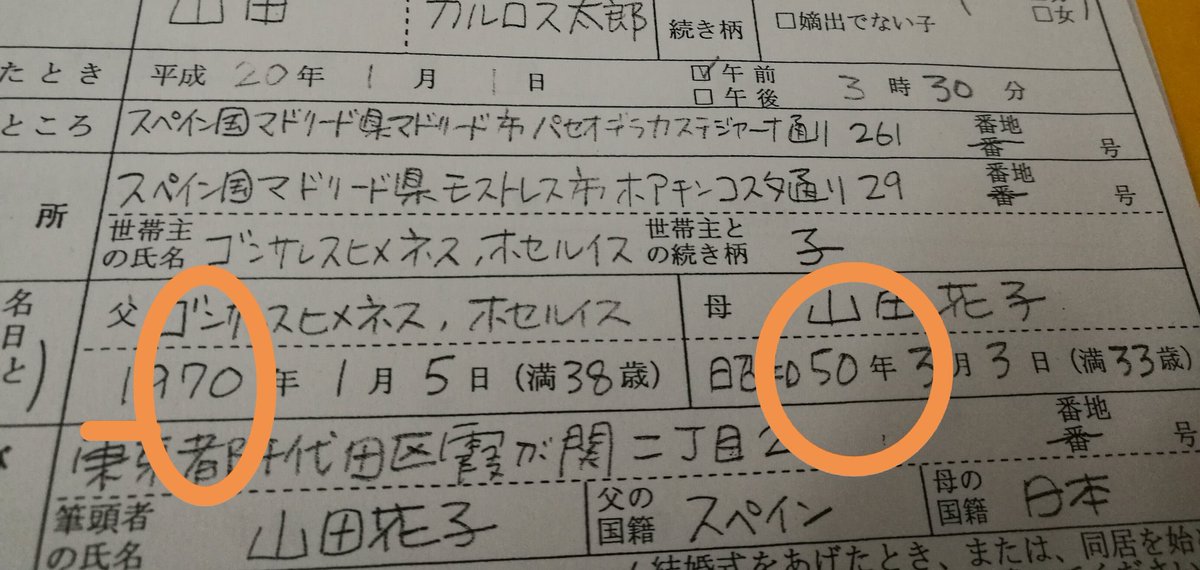 山田 カルロス太郎 続き柄 □嫡出でない子 ( □女 )
たとき 平成 20年 1月 1日 ☑午前 □午後 3時30分
ところ スペイン国マドリード県マドリード市パセオデラカステジャーナ通り261 番地 番 号
所 スペイン国マドリード県モストレス市ホアキンコスタ通り29 番地 番 号
世帯主の氏名 ゴンサレスヒメネス,ホセルイス 世帯主との続き柄 子
父 ゴンサレスヒメネス,ホセルイス 母 山田花子
名 日 と ) 1970年 1月 5日(満38歳) 昭和50年 3月 3日(満33歳)
東京都千代田区霞が関二丁目2 番地 番 号
筆頭者の氏名 山田花子 父の国籍 スペイン 母の国籍 日本
(結婚式をあげたとき、または、同居を始